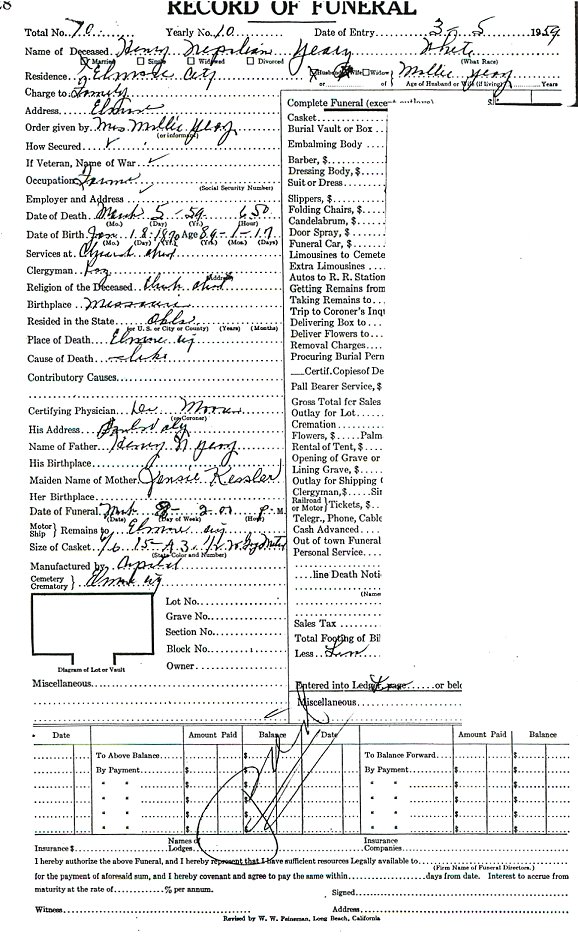 RECORD OF FUNERAL
Total No. 70. Yearly No. 10 Date of Entry 3-5 1959
Name of Deceased Henry Yeary White
Married Single Widowed Divorced (What Race)
Residence Elmore City Husband Wife Widow } Mollie Yeary
or of Age of Husband or Wife (if living) Years
Charge to Family
Address Elmore
Order given by Mrs Mollie Yeary
(or informant)
How Secured
If Veteran, Name of War
Occupation Farmer
(Social Security Number)
Employer and Address
Date of Death March 5-59 6 50
(Mo.) (Day) (Yr.) (Hour)
Date of Birth Jan 18-1870 Age 89-1-17
(Mo.) (Day) (Yr.) (Yrs.) (Mos.) (Days)
Services at Church
Clergyman
Address
Religion of the Deceased Church
Birthplace Missouri
Resided in the State Okla
(or U. S. or City or County) (Years) (Months)
Place of Death Elmore City
Cause of Death
Contributory Causes
Certifying Physician Dr
(or Coroner)
His Address
Name of Father Henry N Yeary
His Birthplace
Maiden Name of Mother Jensie Kessler
Her Birthplace
Date of Funeral 8- 2:00 P. M.
(Date) (Day of Week) (Hour)
Motor Ship } Remains to Elmore City
Size of Casket 6/6 15-A3
(State Color and Number)
Manufactured by Capitol
Cemetery Crematory } Elmore City
Lot No.
Grave No.
Section No.
Block No.
Owner
Diagram of Lot or Vault
Miscellaneous
Complete Funeral (except outlays) $
Casket
Burial Vault or Box
Embalming Body
Barber, $
Dressing Body, $
Suit or Dress
Slippers, $
Folding Chairs, $
Candelabrum, $
Door Spray, $
Funeral Car, $
Limousines to Cemete
Extra Limousines
Autos to R. R. Station
Getting Remains from
Taking Remains to
Trip to Coroner's Inqu
Delivering Box to
Deliver Flowers to
Removal Charges
Procuring Burial Perm
Certif. Copies of De
Pall Bearer Service, $
Gross Total for Sales
Outlay for Lot
Cremation
Flowers, $ Palm
Rental of Tent, $
Opening of Grave or
Lining Grave, $
Outlay for Shipping C
Clergyman, $ Sin
Railroad or Motor } Tickets, $
Telegr., Phone, Cable
Cash Advanced
Out of town Funeral
Personal Service
line Death Noti
(Name
Sales Tax
Total Footing of Bil
Less
Entered into Ledger, page or belo
Miscellaneous
Date Amount Paid Balance Date Amount Paid Balance
To Above Balance $ $ To Balance Forward $ $
By Payment $ $ By Payment $ $
" " $ $ " " $ $
" " $ $ " " $ $
" " $ $ " " $ $
" " $ $ " " $ $
Insurance $ Names of Lodges Insurance Companies
I hereby authorize the above Funeral, and I hereby represent that I have sufficient resources Legally available to
(Firm Name of Funeral Directors.)
for the payment of aforesaid sum, and I hereby covenant and agree to pay the same within days from date. Interest to accrue from
maturity at the rate of % per annum. Signed
Witness Address
Revised by W. W. Feineman, Long Beach, California